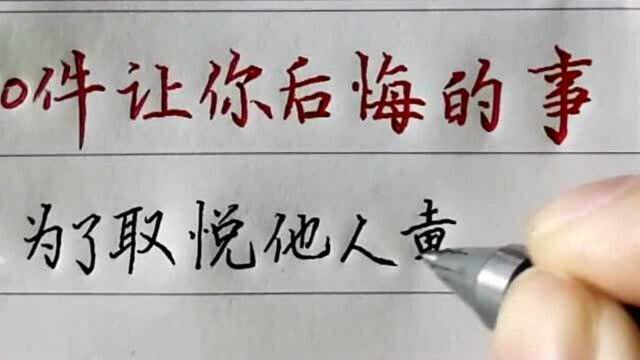 0件让你后悔的事
为了取悦他人